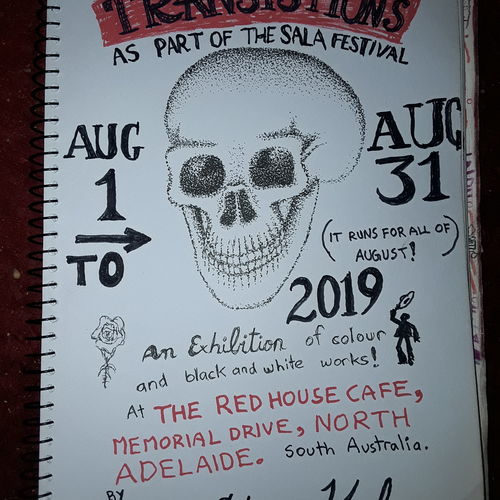 TRANSISTIONS
AS PART OF THE SALA FESTIVAL
AUG
1
TO
AUG
31
(IT RUNS FOR ALL OF
AUGUST!)
2019
An Exhibition of colour
and black and white works!
At THE RED HOUSE CAFE,
MEMORIAL DRIVE, NORTH
ADELAIDE. South Australia.
BY